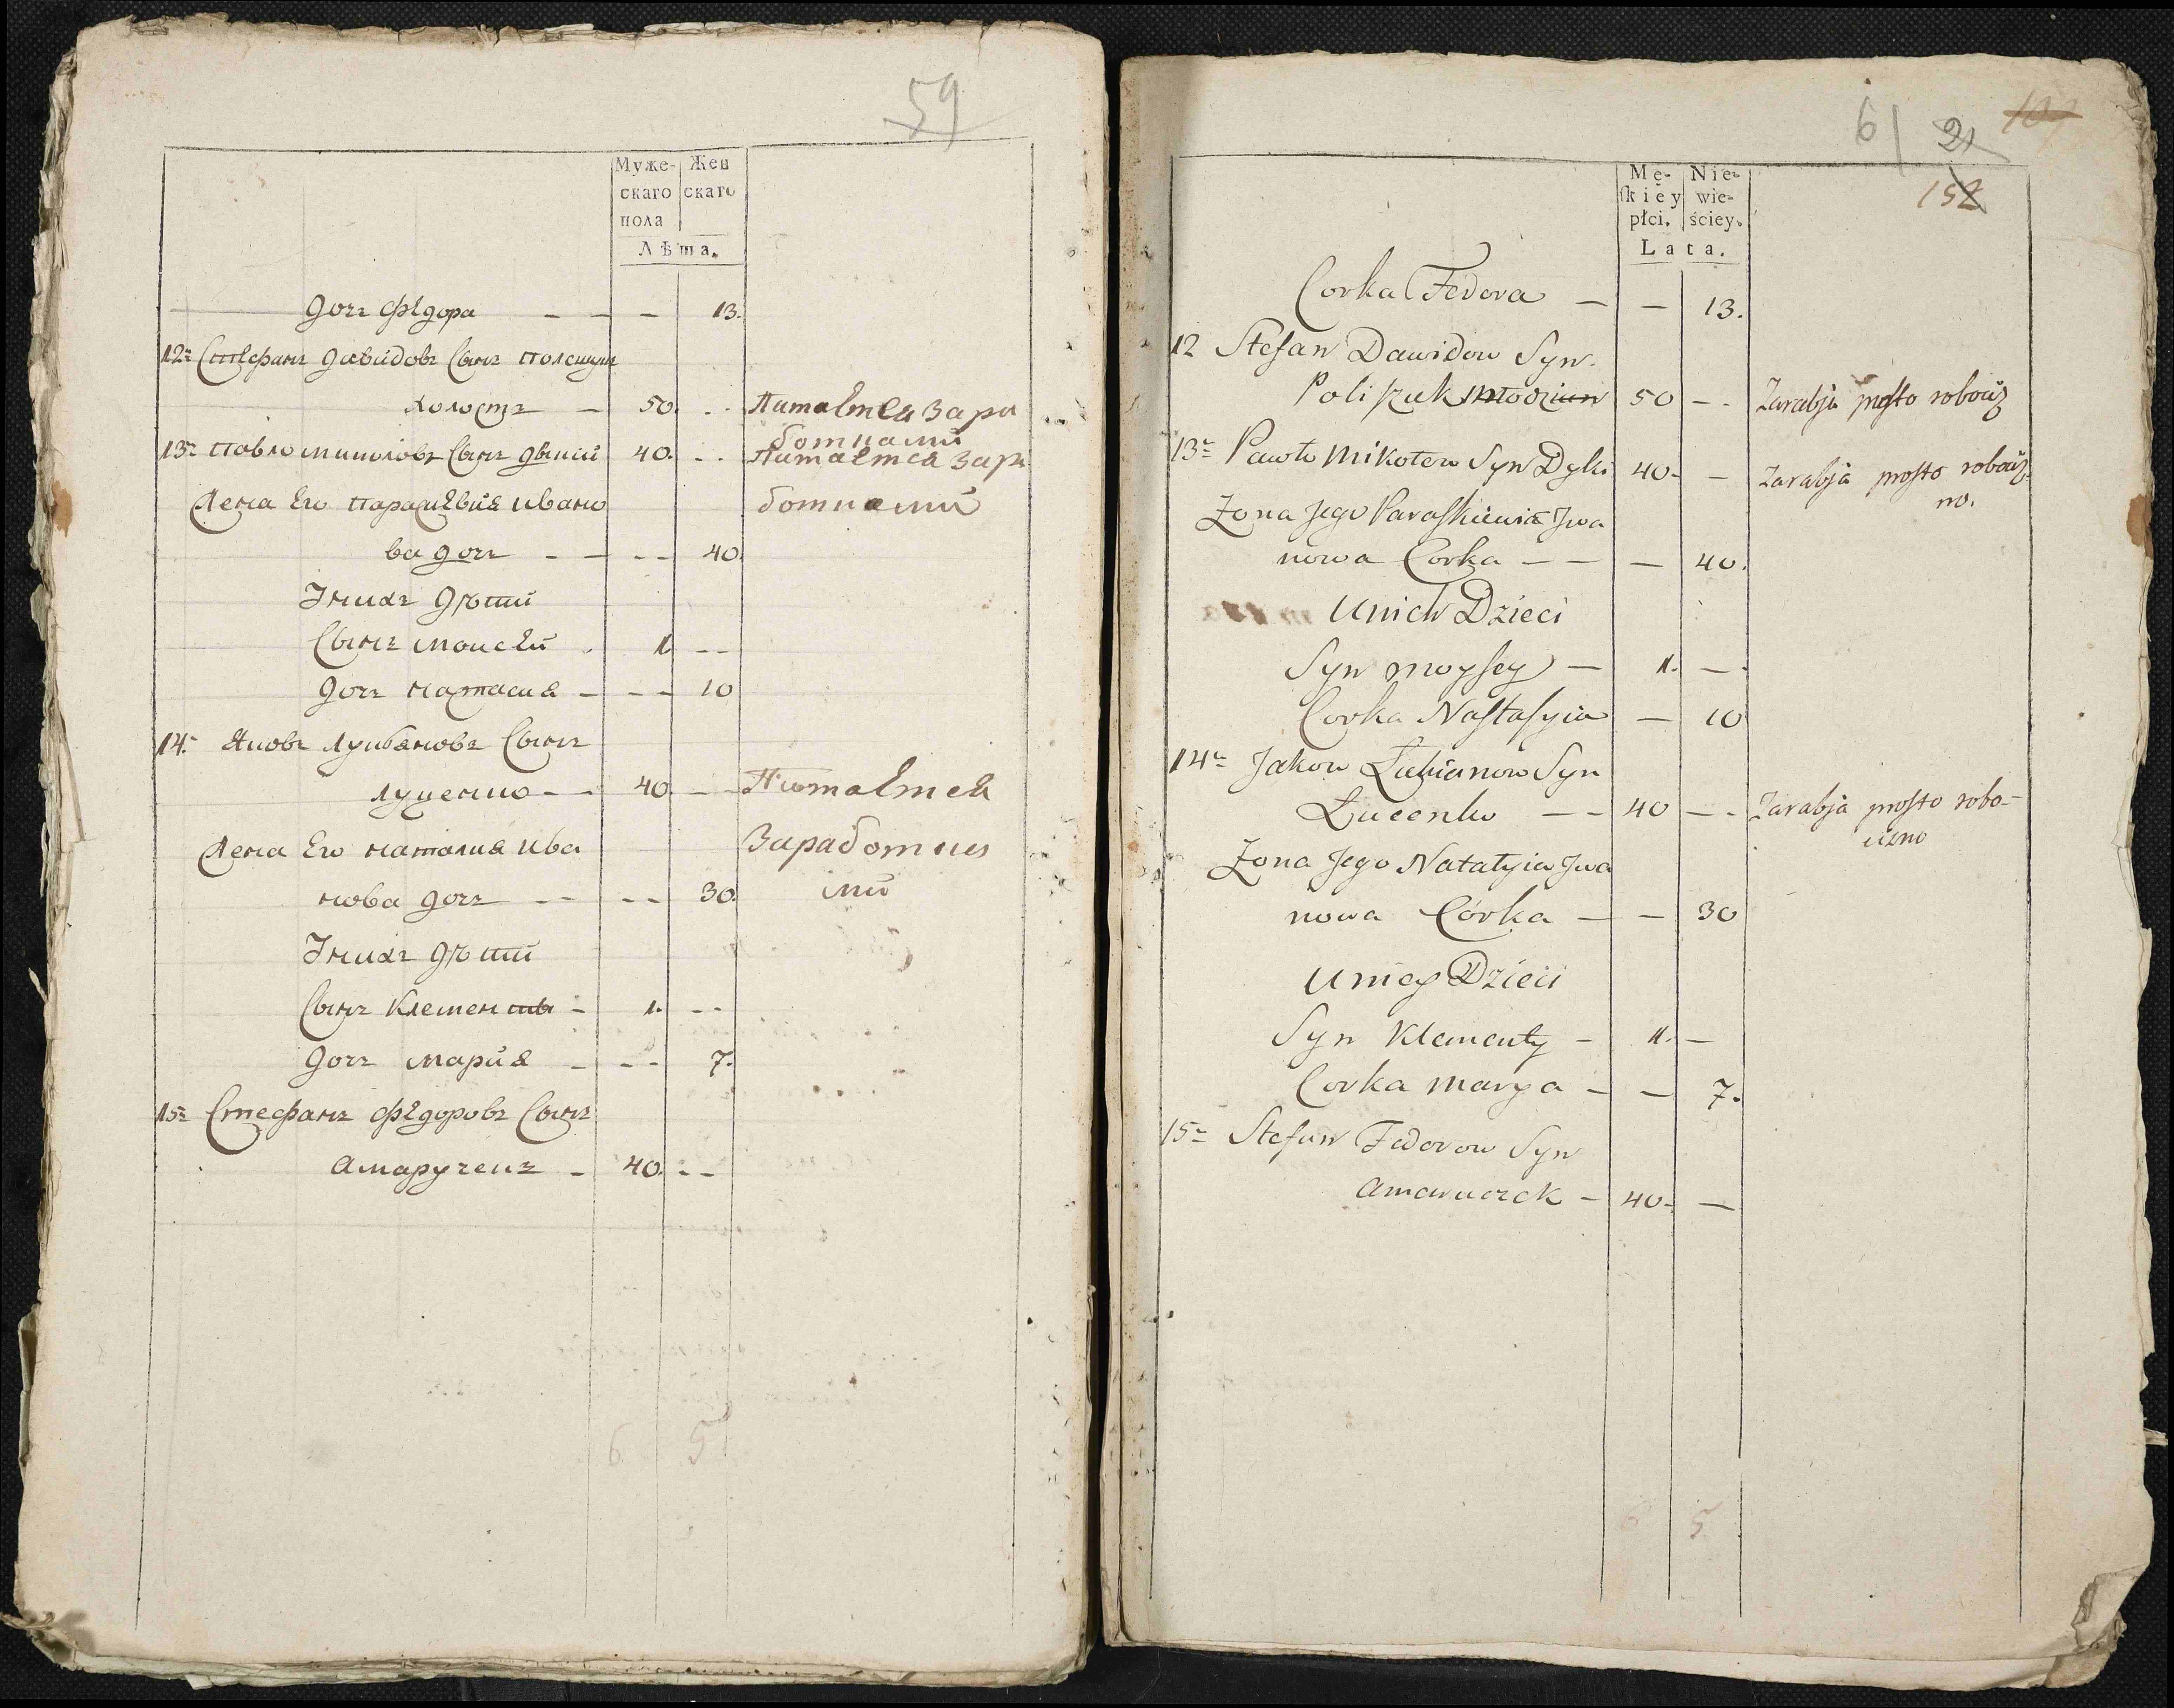 59
Муже-
скаго
пола
Жен
скаго
Лѣта.
дочь Федора — — — 13.
12 Стефанъ Давидовъ Сынъ Полещукъ
холостъ — 50. - - Питается Зара
ботками
13 Павло Миколовъ Сынъ Дыкій 40. - - Питается Зара
Жена Его Параскевия Ивано ботками
ва дочь — — - - 40.
У нихъ дѣти
Сынъ Моисей . 1. - -
дочь Настасия - - - 10
14. Яковъ Лукьяновъ Сынъ
Луценко - - 40. - - Питается
Жена Его Наталия Ива Заработка
нова дочь - - - - 30. ми
У нихъ дѣти
Сынъ Клементы - 1. - -
дочь Мария - - - 7.
15 Стефанъ Федоровъ Сынъ
6 5
61 21 101
152
Mę-
ſkiéy
płci.
Nie-
wie-
ściey.
Lata.
Corka Fedora — — 13.
12 Stefan Dawidow Syn.
Poliſzuk Młodzian 50 - - Zarabja proſto robocz
13 Pawło Mikołow Syn Dyki 40- — Zarabja proſto robocz
no.
Zona Jego Paraſkiewia Jwa
nowa Corka — — — 40.
U nich Dzieci
Syn Moyſey — 1. —
Corka Naſtaſyia — 10
14 Jakow Łukianow Syn
Łucenko — - 40 - - Zarabja proſto robo-
czno
Zona Jego Natalyia Jwa
nowa Córka — — 30
U niey Dzieci
Syn Klementy - 1. —
Corka Marya - — 7.
15 Stefan Fedorow Syn
40- —
6 5